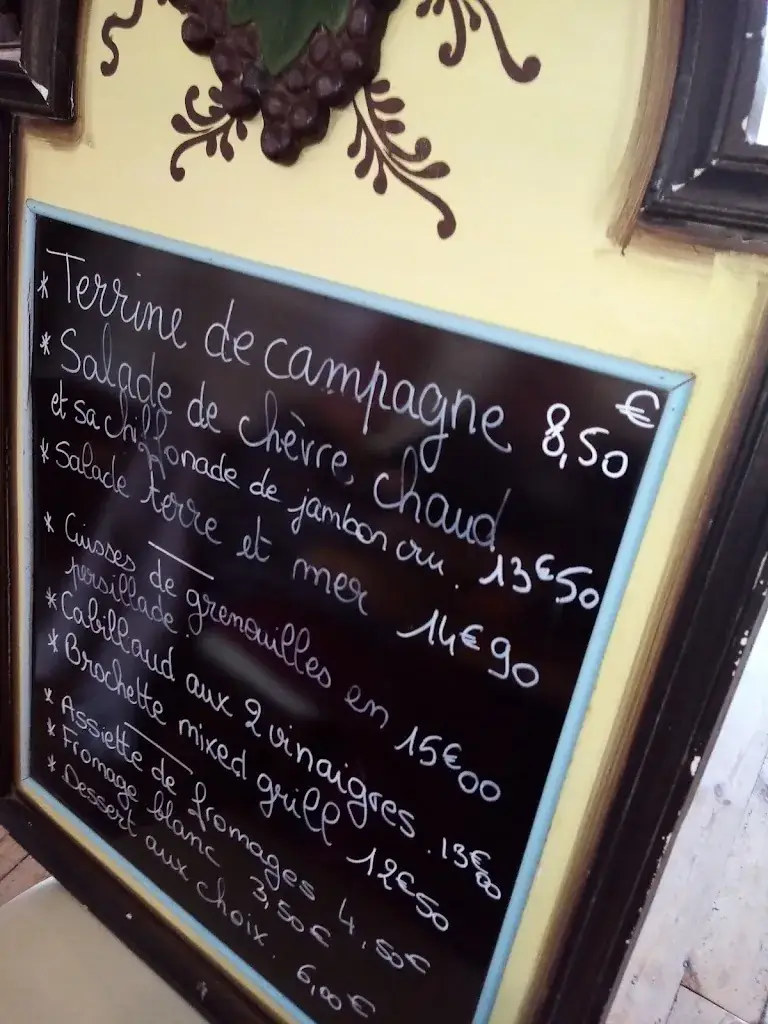 * Terrine de campagne 8,50 €
* Salade de chèvre, chaud
et sa chiffonade de jambon cru. 13€50
* Salade terre et mer 14€90
* Cuisses de grenouilles en
persillade. 15€00
* Cabillaud aux 2 vinaigres. 13€00
* Brochette mixed grill 12€50
* Assiette de fromages 4,50€
* Fromage blanc 3,50€
* Dessert aux choix. 6,00€